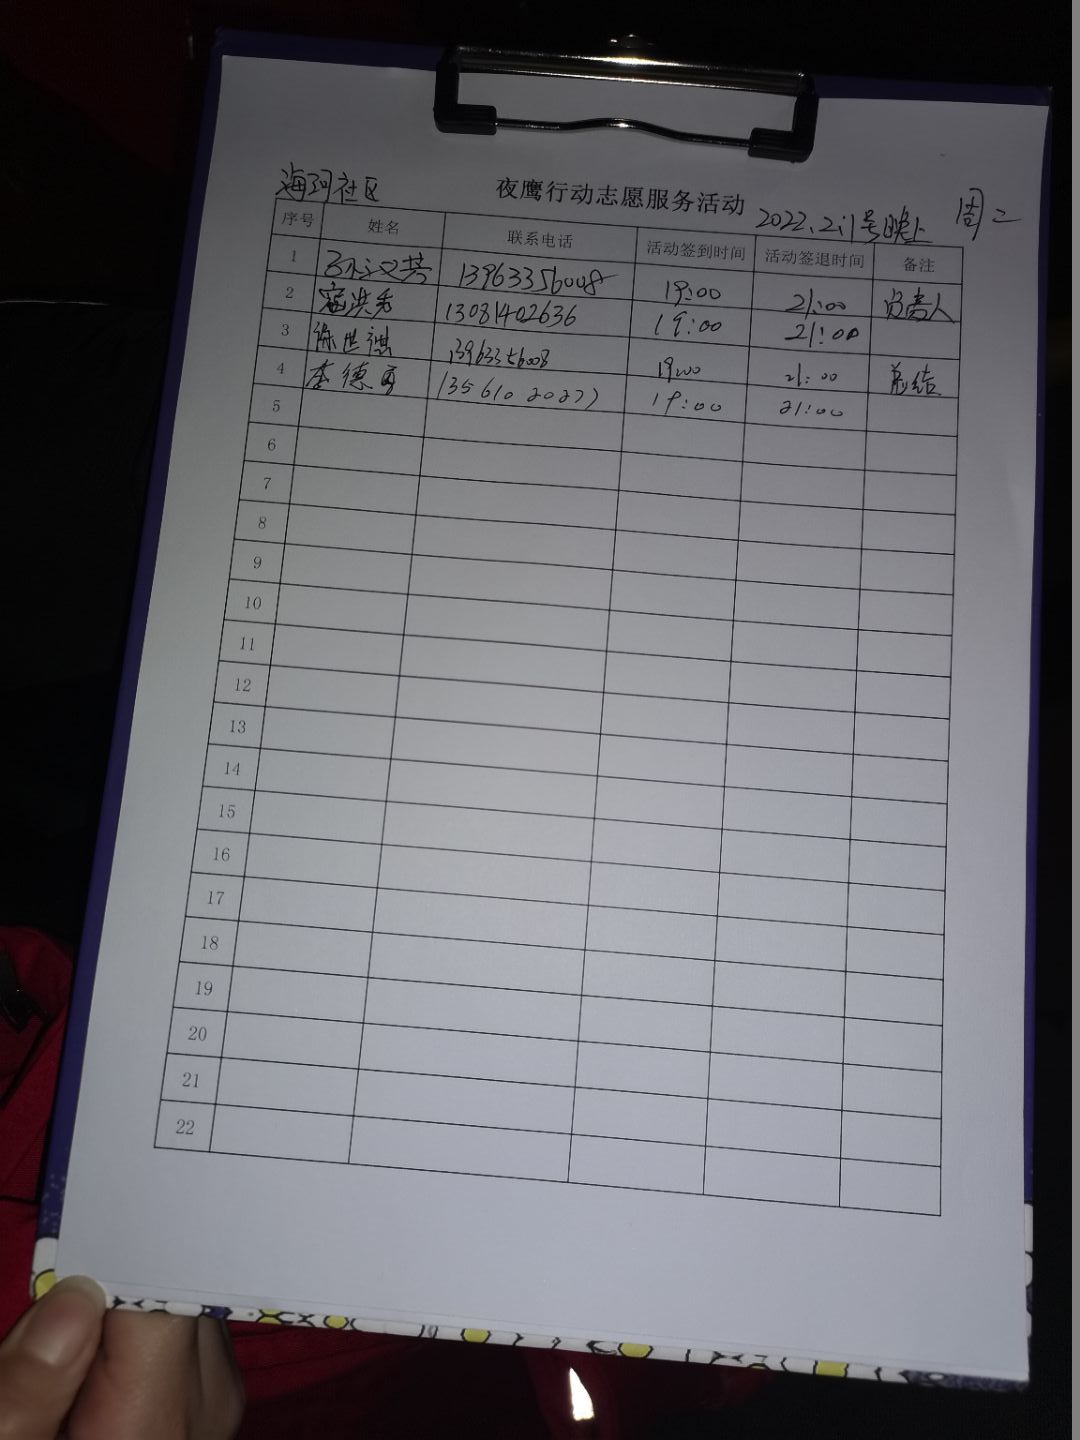 海河社区
夜鹰行动志愿服务活动
2022.2.1号晚上 周二
序号 姓名 联系电话 活动签到时间 活动签退时间 备注
1 13963356008 19:00 21:00 负责人
2 13081402636 19:00 21:00
3 13963356008 19:00 21:00 总结
4 李德 19:00 21:00
5
6
7
8
9
10
11
12
13
14
15
16
17
18
19
20
21
22